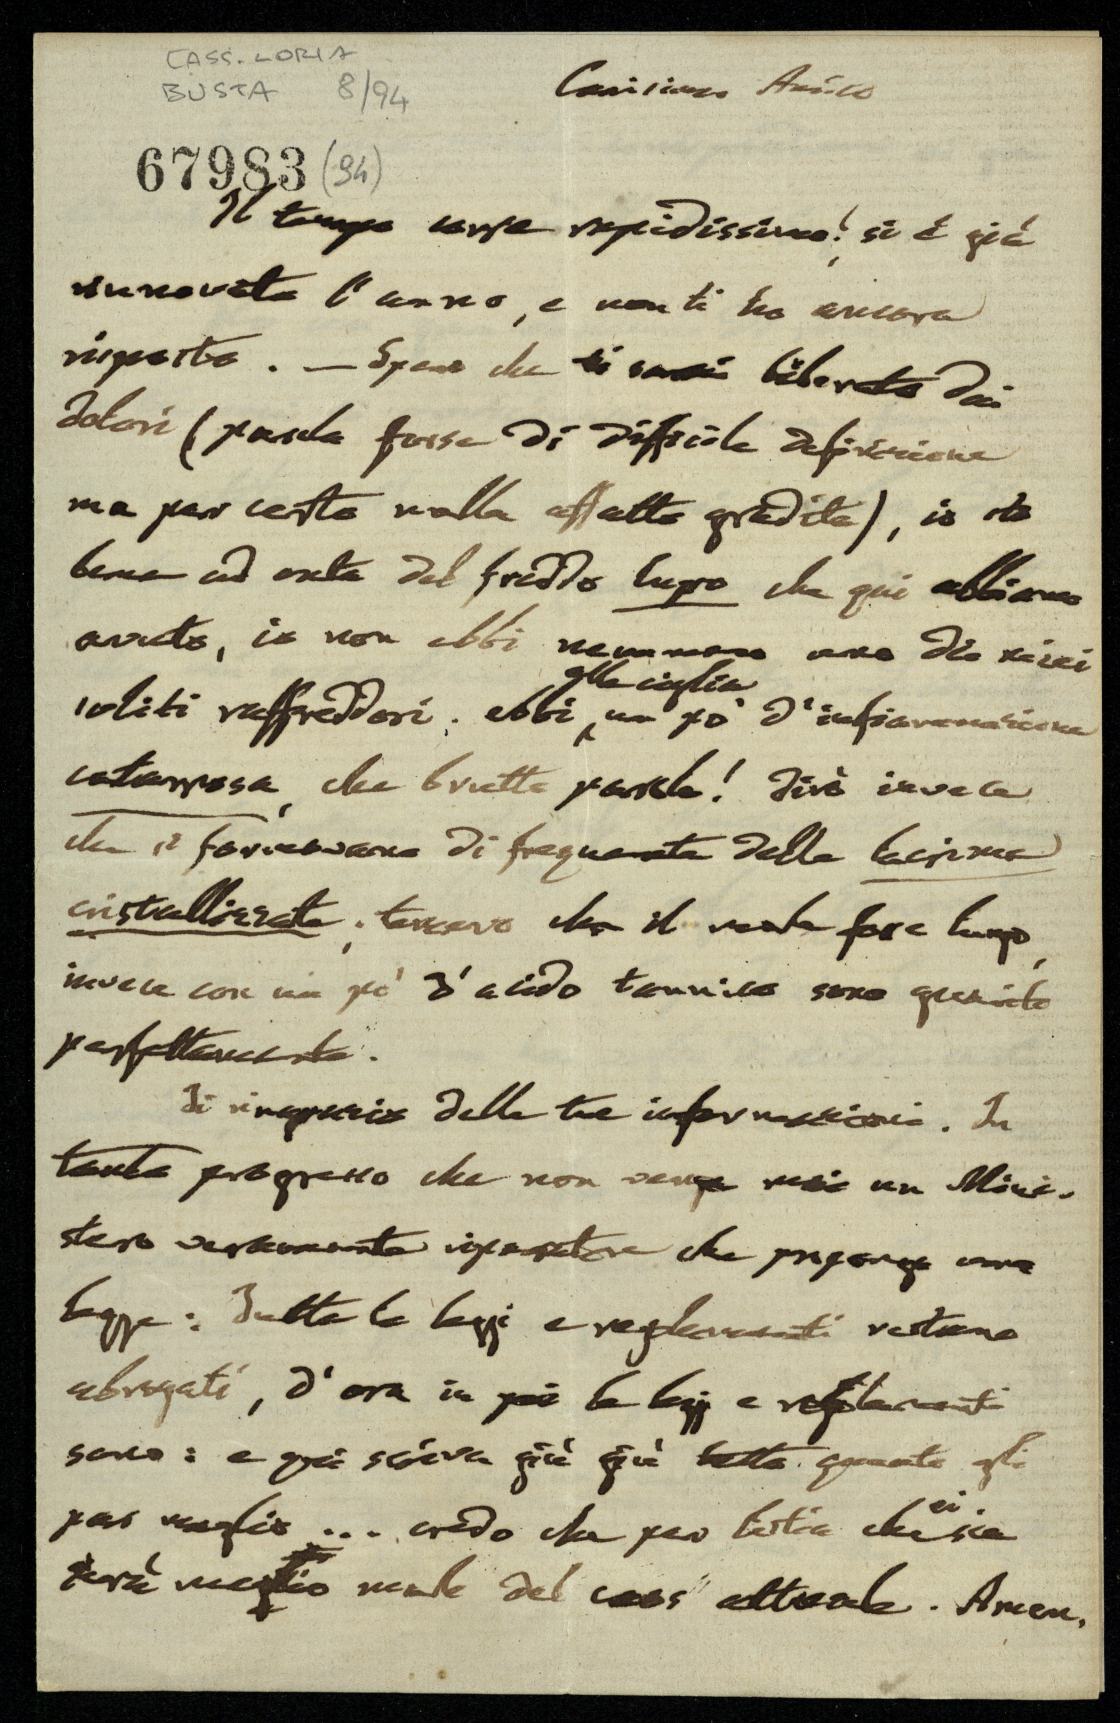 CASS. LORIA
BUSTA 8/94
Carissimo Amico
67983 (94)
Il tempo corre rapidissimo! si è già
rinnovato l'anno, e non ti ho ancora
risposto. — Spero che ti sarai liberato dai
dolori (parola forse di difficile definizione
ma per certo nulla affatto gradita), io sto
bene ad onta del freddo lupo che qui abbiamo
avuto, io non ebbi nemmeno uno dei miei
soliti raffreddori. ebbi alle ciglia un po' d'infiammazione
catarrosa, che brutta parola! dirò invece
che si formavano di frequente delle lacrime
cristallizzate; temevo che il male fosse lungo,
invece con un po' d'acido tannico sono guarito
perfettamente.
Ti ringrazio delle tue informazioni. In
tanto progresso che non venga mai un Mini-
stero veramente riparatore che proponga una
legge: Tutte le leggi e regolamenti restano
abrogati, d'ora in poi le leggi e regolamenti
sono: e qui scriva giù giù tutto quanto gli
par meglio ... credo che per bestia che ei sia
farà meglio male del caos attuale. Amen.